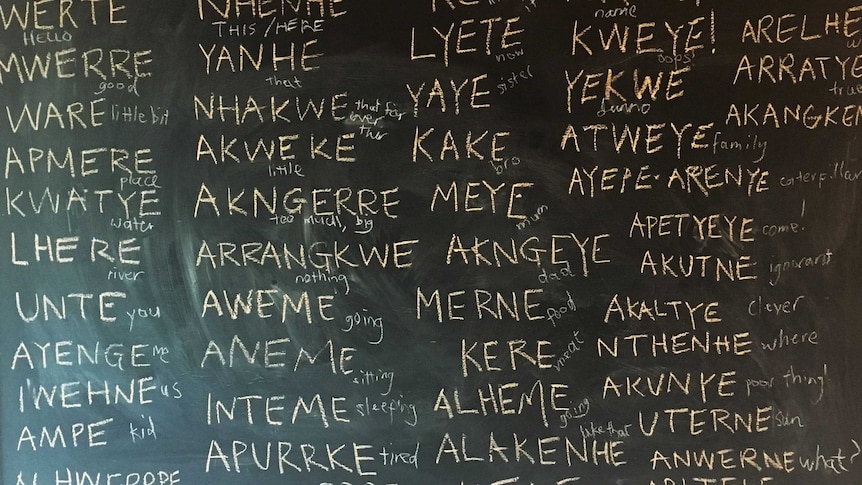 WERTE
Hello
MWERRE
good
WARE little bit
APMERE
place
KWATYE
water
LHERE
river
UNTE you
AYENGE me
IWEHNE us
AMPE kid
NHENHE
THIS / HERE
YANHE
that
NHAKWE that far over ther
AKWEKE
little
AKNGERRE
too much, big
ARRANGKWE
nothing
AWEME going
ANEME
sitting
INTEME sleeping
APURRKE tired
LYETE
now
YAYE sister
KAKE
bro
MEYE
mum
AKNGEYE
dad
MERNE food
KERE meat
ALHEME
going
ALAKENHE like that
name
KWEYE!
oops!
YEKWE
dunno
ATWEYE family
AYEPE-ARENYE caterpillar
APETYEYE come!
AKUTNE ignorant
AKALTYE clever
NTHENHE where
AKUNYE poor thing!
UTERNE sun
ANWERNE what?
ARELHE
ARRATYE
true